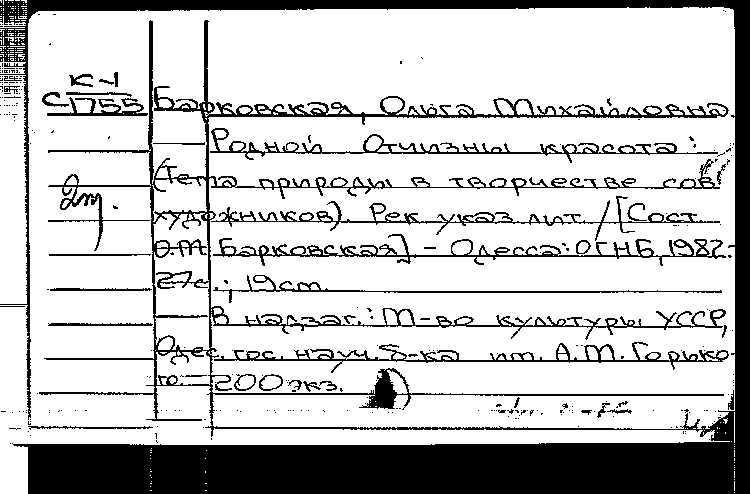 К-1
С1755
Барковская, Ольга Михайловна.
Родной Отчизны красота:
(Тема природы в творчестве сов
художников). Рек указ лит /[Сост
О.М Барковская]. - Одесса: ОГНБ, 1982.-
27с.; 19см.
В надзаг.: М-во культуры УССР,
Одес. гос. науч. б-ка им. А.М. Горько-
го. — 200 экз.
2т.